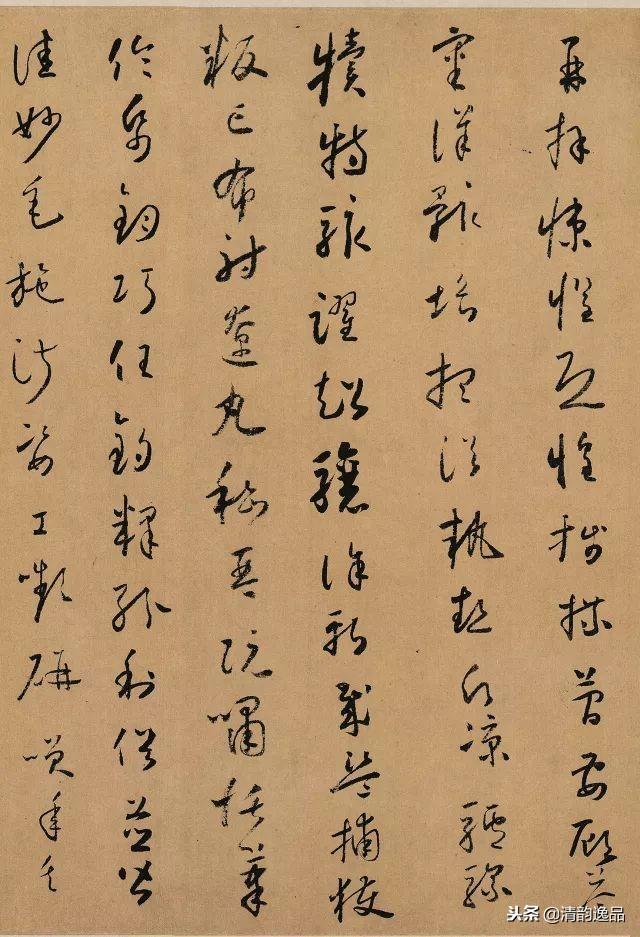 再拜悚懼恐惶牋牒簡要顧答
審詳骸垢想浴執熱願涼驢騾
犢特駭躍超驤誅斬賊盜捕獲
叛亡布射遼丸嵇琴阮嘯恬筆
倫紙鈞巧任釣釋紛利俗並皆
佳妙毛施淑姿工嚬妍咲年矢
头条 @清韵逸品